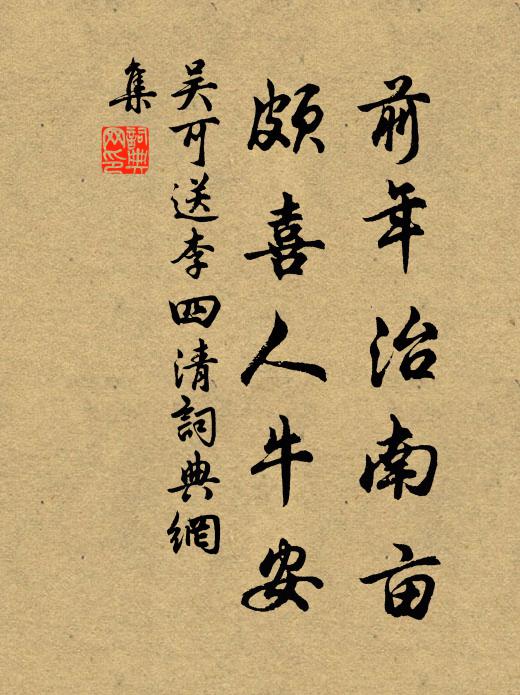 前年治南亩
颇喜人牛安
吴可送李四清詞典網
集
詞典
网印